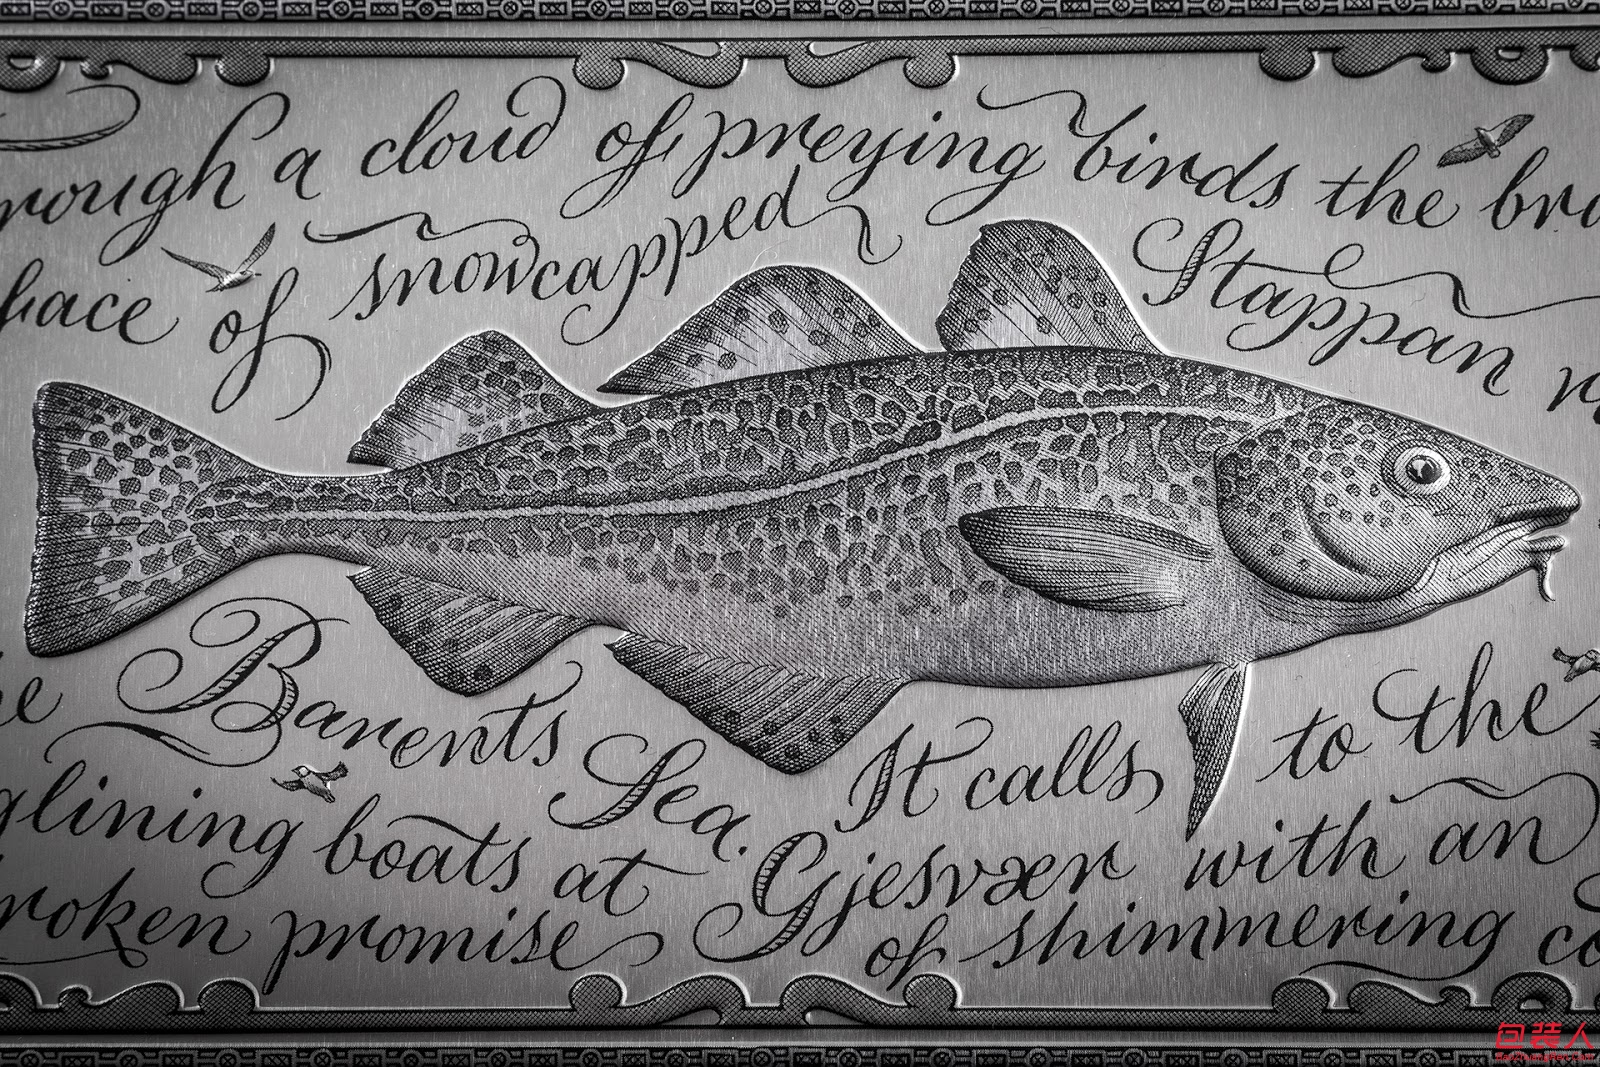 rough a cloud of preying birds the bro
face of snowcapped Stappan
Barents Sea. It calls to the
glining boats at Gjesvær with an
roken promise of shimmering co
包装人